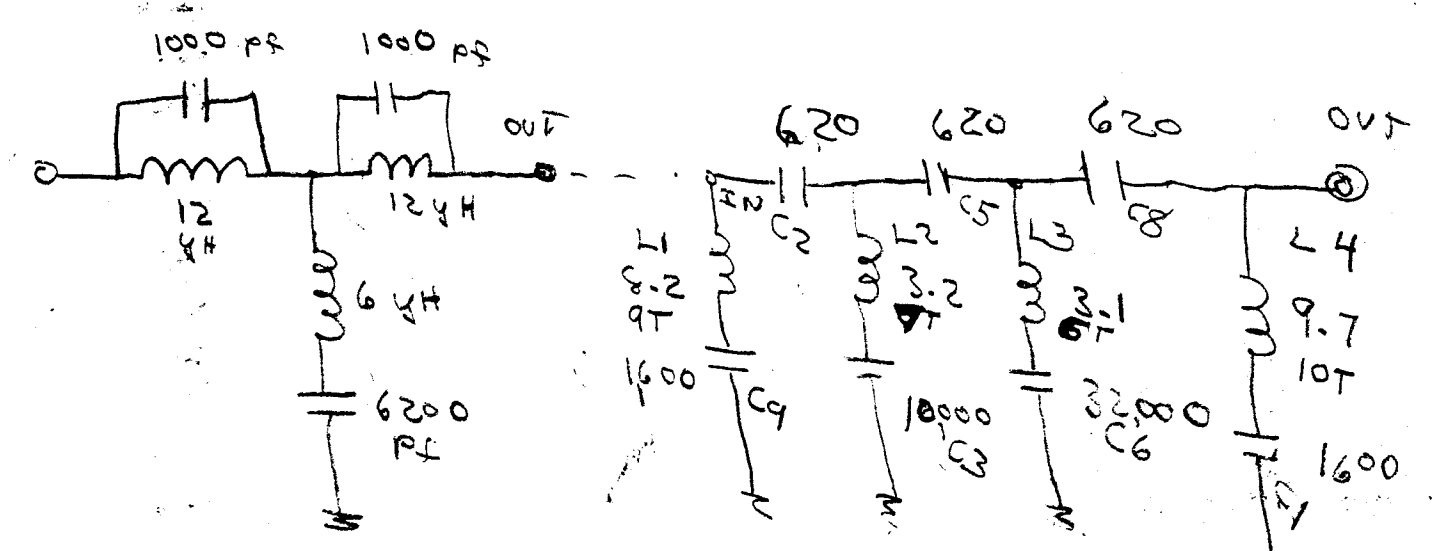 1000 pf
1000 pf
OUT
12
μH
12 μH
6 μH
6200
pf
620
620
620
OUT
C2
C5
C8
L1
8.2
9T
1600
C9
L2
3.2
10,000
C3
L3
32,000
C6
L4
9.7
10T
1600